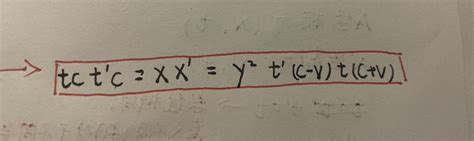 tc t'c = x x' = y² t'(c-v) t(c+v)